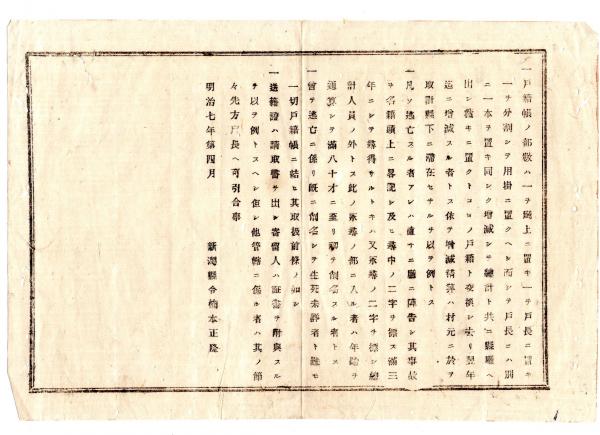 一戸籍帳ノ部数ハ一ヲ廳上ニ置キ一ヲ戸長ニ置キ
一ヲ分割シテ用掛ニ置クヘシ而シテ戸長ニハ別
ニ一本ヲ置キ同シク増減シテ總計ト共ニ縣廳ヘ
出シ豫キニ置クトコロノ戸籍ト交換シ去リ翌年
迄ニ増減スル者トス依テ増減精算ハ村元ニ於テ
取計縣下ニ滞在セサルヲ以テ例トス
一凡ソ逃亡スル者アレハ直チニ廳ニ陣告シ其事故
ヲ名籍頭上ニ畧記シ及ヒ尋中ノ二字ヲ標ス滿三
年ニシテ尋得サルトキハ又永尋ノ二字ヲ標シ總
計人員ノ外トス此ノ永尋ノ部ニ入ル者ハ年齢ヲ
通算シテ滿八十才ニ至リ初テ削名スル者トス
一曾テ逃亡ニ係リ既ニ削名シテ生死未詳者ト雖モ
一切戸籍帳ニ結ヒ其取扱前條ノ如シ
一送籍證ハ請取書ヲ出シ寄留人ハ証書ヲ附與スル
ヲ以テ例トスヘシ但シ他管轄ニ係ル者ハ其ノ節
々先方戸長ヘ可引合事
明治七年第四月
新潟縣令楠本正隆